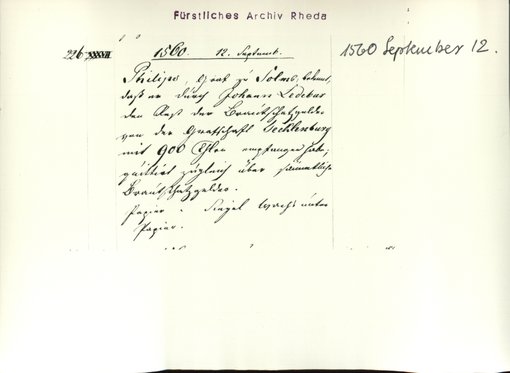 Fürstliches Archiv Rheda
226 1560. 12. Septembr. 1560 September 12.
Philipp, Graf zu Solms, bekennt,
daß er durch Johann Ledebur
den Rest der Brautschatzgelder
von der Grafschaft Tecklenburg
mit 900 Thlrn empfangen habe,
quittirt zugleich über sämmtliche
Brautschatzgelder.
Papier. Siegel Wachs unter
Papier.